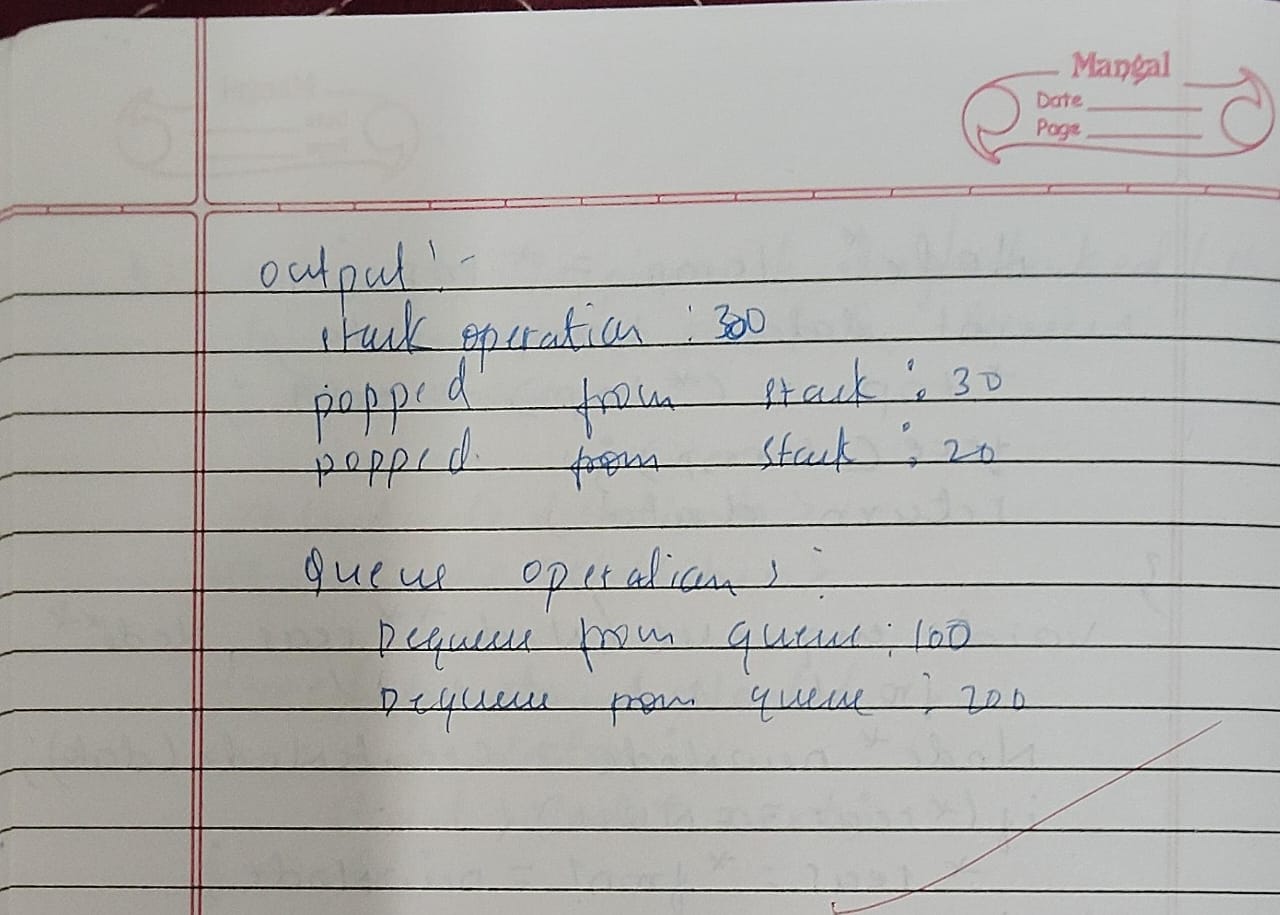 Mangal
Date
Page
output :-
stack operation : 300
popped from stack : 30
popped from stack : 20
Queue operation :
Dequeue from queue : 100
Dequeue from queue : 200